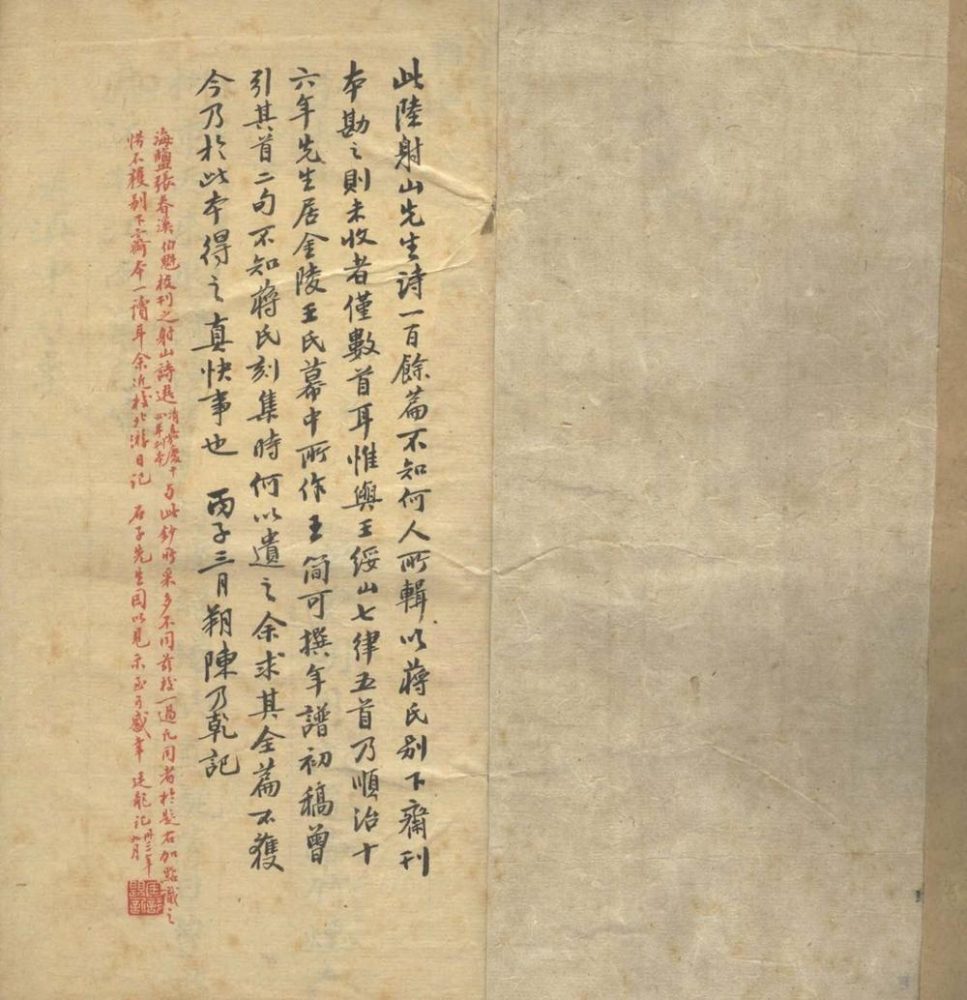 此陸射山先生詩一百餘篇不知何人所輯以蔣氏別下齋刊
本勘之則未收者僅數首耳惟與王綏山七律五首乃順治十
六年先生居金陵王氏幕中所作王簡可撰年譜初稿曾
引其首二句不知蔣氏刻集時何以遺之余求其全篇不獲
今乃於此本得之真快事也 丙子三月朔陳乃乾記
海鹽張春溪伯魁校刊之射山詩選清嘉慶十四年刊本与此鈔所采多不同前校一過凡同者於題右加點識之
惜不獲別下齋本一讀耳余近校北游日記 石子先生因以見示至可感幸 廷龍記 卅二年八月